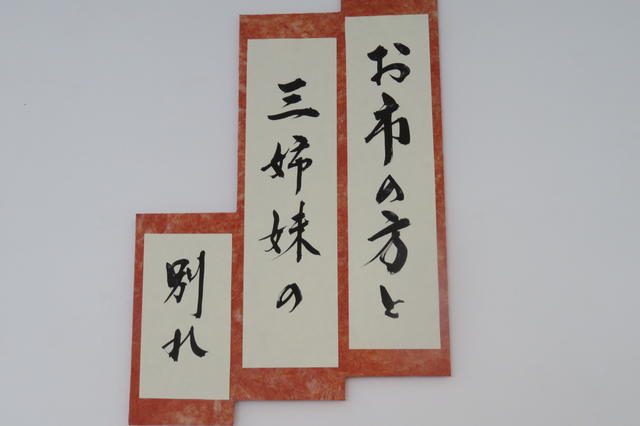 お市の方と
三姉妹の
別れ